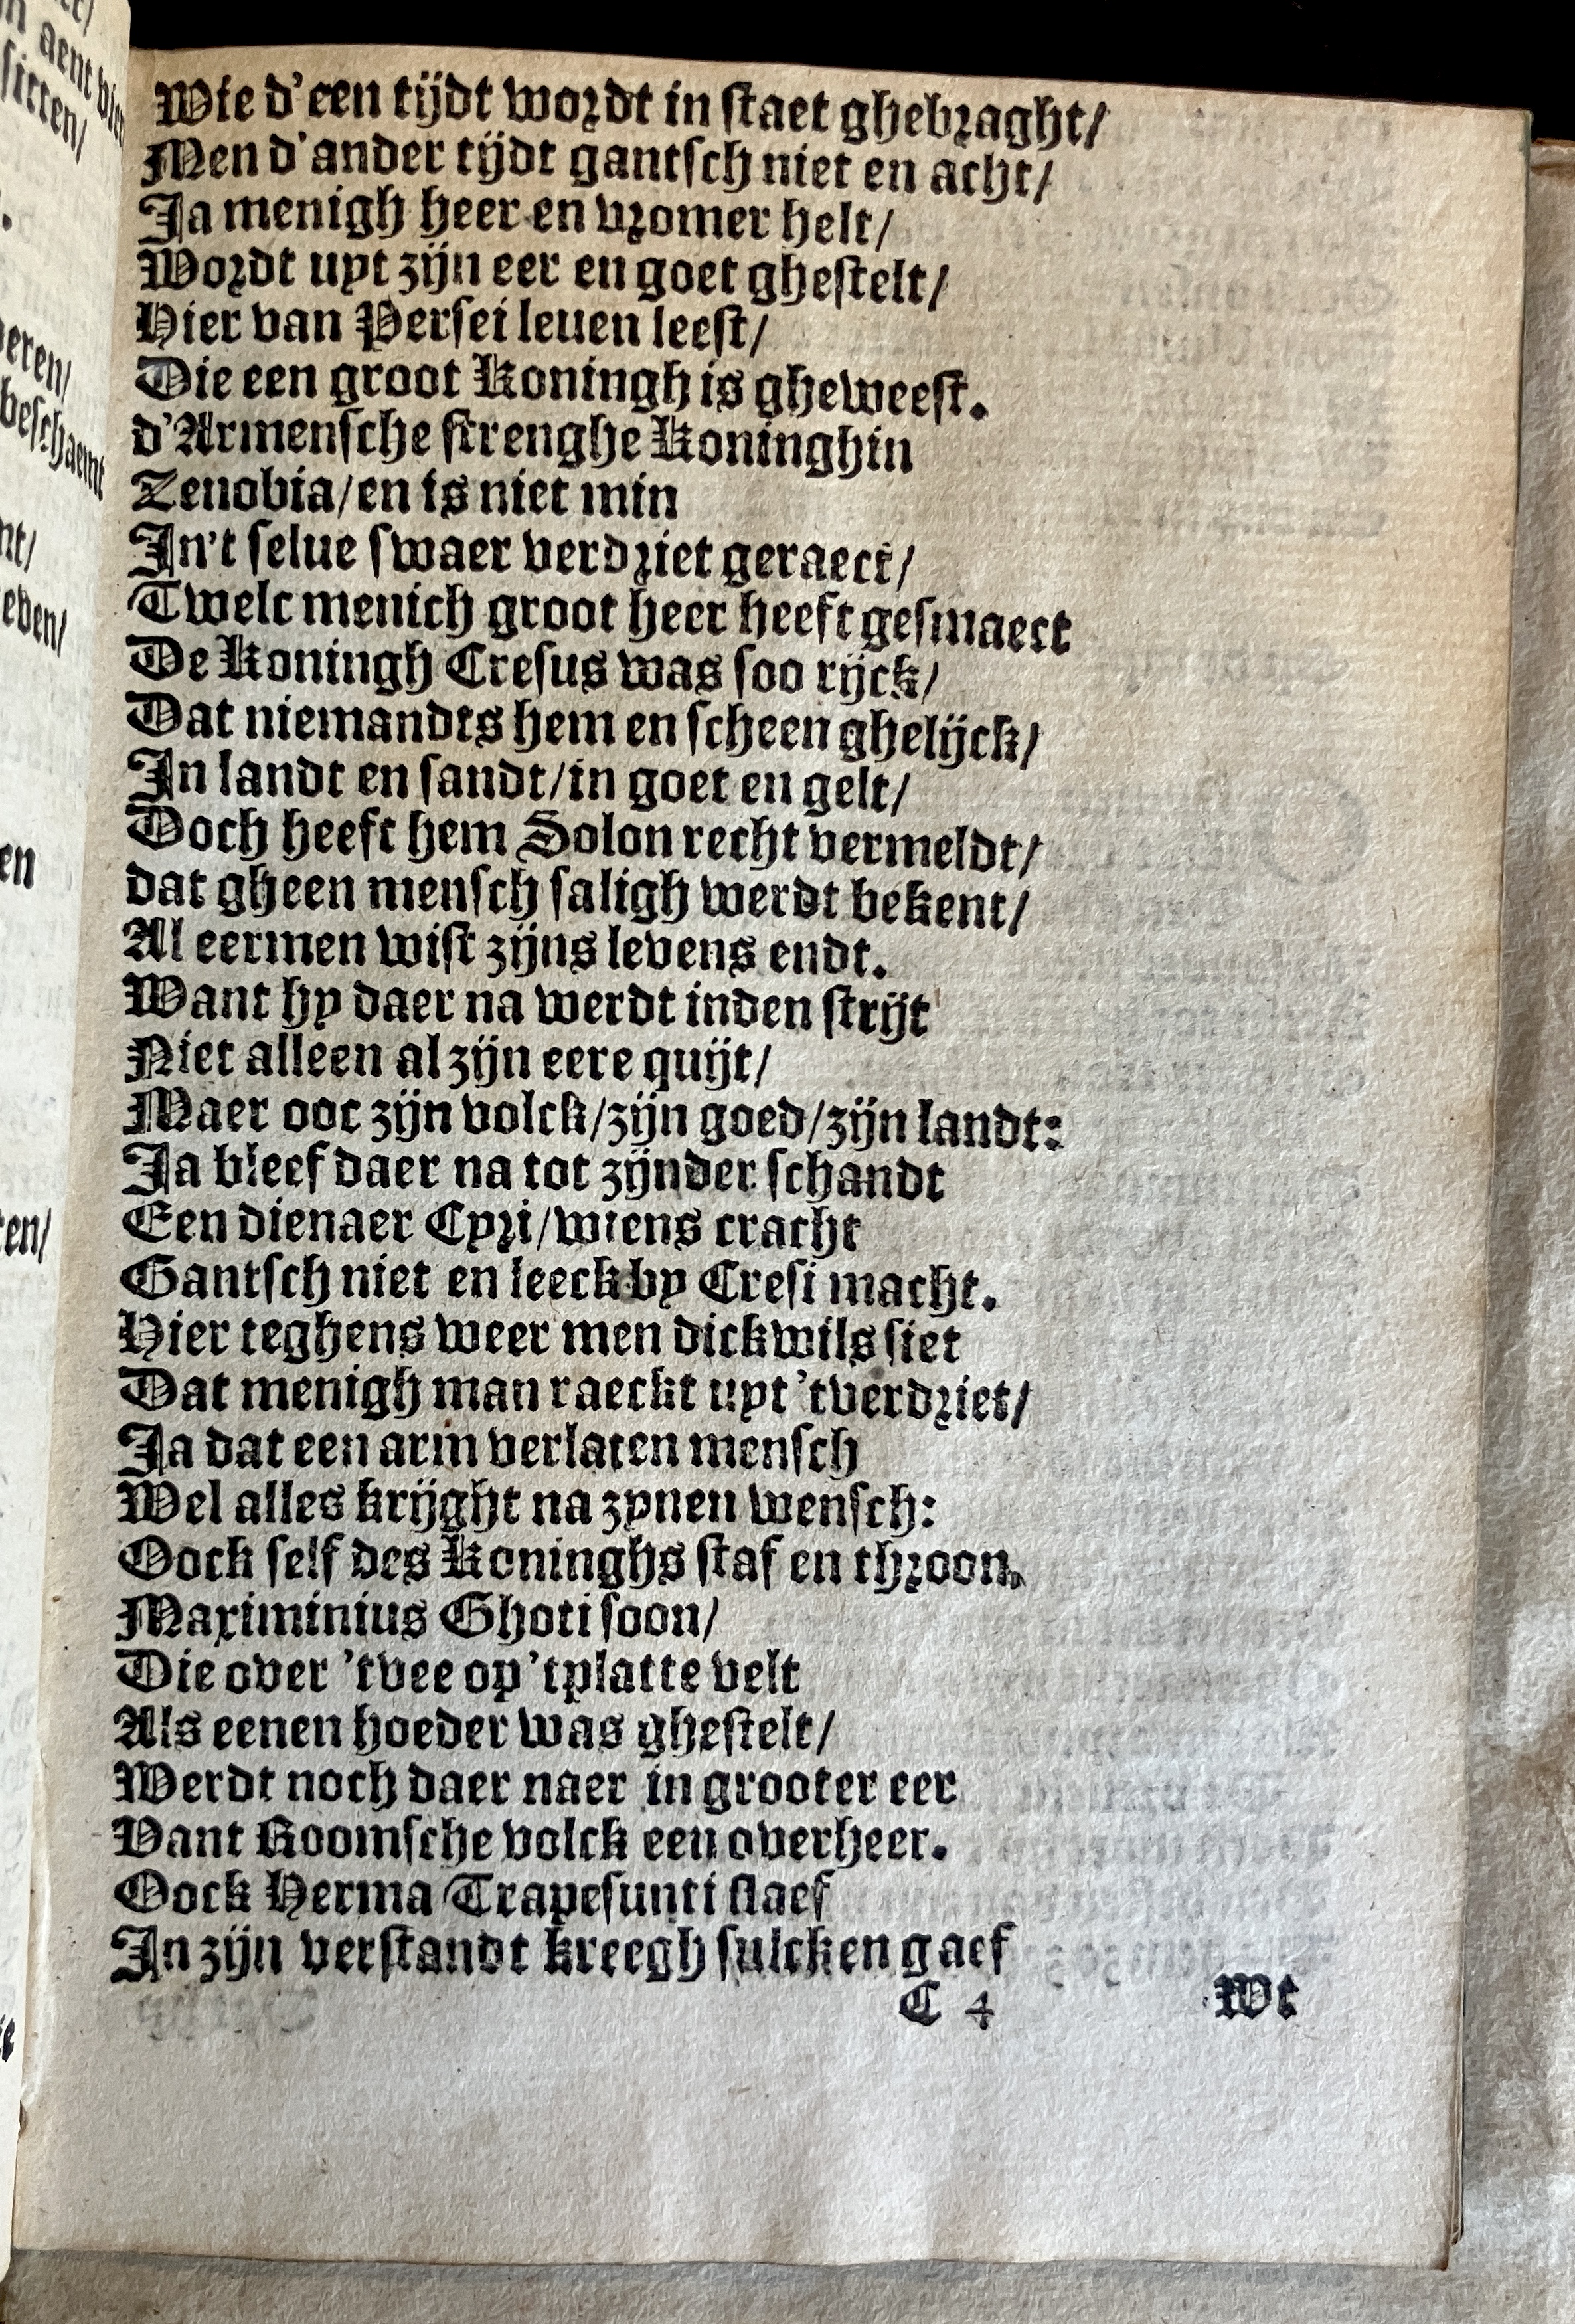 Wie d'een tijdt wordt in staet ghebraght/
Men d'ander tijdt gantsch niet en acht/
Ja menigh heer en vromer helt/
Wordt uyt zijn eer en goet ghestelt/
Hier van Persei leuen leest/
Die een groot Koningh is gheweest.
d'Armensche strenghe Koninghin
Zenobia/en is niet min
In't selue swaer verdriet geraect/
Twelc menich groot heer heeft gesmaect
De Koningh Cresus was soo rijck/
Dat niemandts hem en scheen ghelijck/
In landt en sandt/in goet en gelt/
Doch heeft hem Solon recht vermeldt/
dat gheen mensch saligh werdt bekent/
Al eermen wist zijns levens endt.
Want hy daer na werdt inden strijt
Niet alleen al zijn eere quijt/
Maer ooc zijn volck/zijn goed/zijn landt:
Ja bleef daer na tot zijnder schandt
Een dienaer Cyri/wiens cracht
Gantsch niet en leeck by Cresi macht.
Hier teghens weer men dickwils siet
Dat menigh man raeckt uyt 'tverdriet/
Ja dat een arm verlaten mensch
Wel alles krijght na zynen wensch:
Oock self des Koninghs staf en throon.
Maximinius Ghoti soon/
Die over 'tvee op 'tplatte velt
Als eenen hoeder was ghestelt/
Werdt noch daer naer in grooter eer
Vant Roomsche volck een overheer.
Oock Herma Trapesunti slaef
In zijn verstandt kreegh sulcken gaef
C 4 Wt
aent
sitten/
.
beschaemt
nt/
even/
en
en/